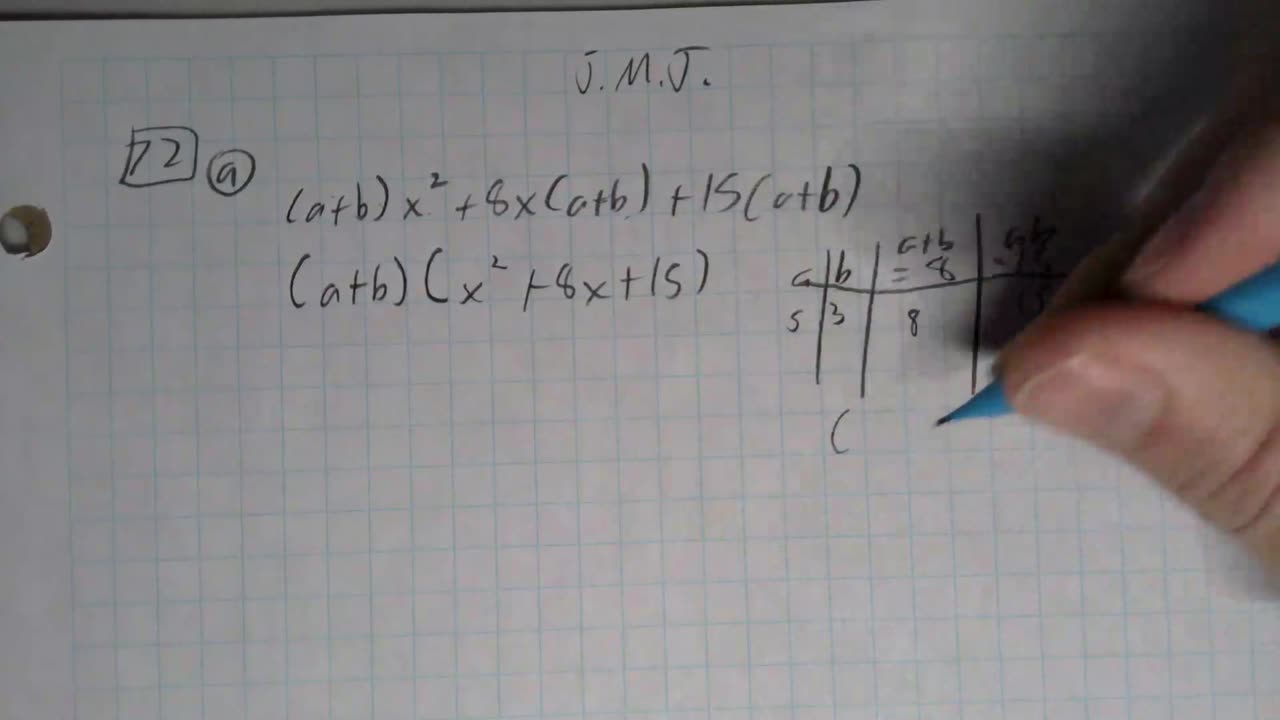 J.M.J.
72 a
(a+b)x² + 8x(a+b) + 15(a+b)
(a+b)(x² + 8x + 15)
a | b | a+b = 8
5 | 3 | 8 | 15
(